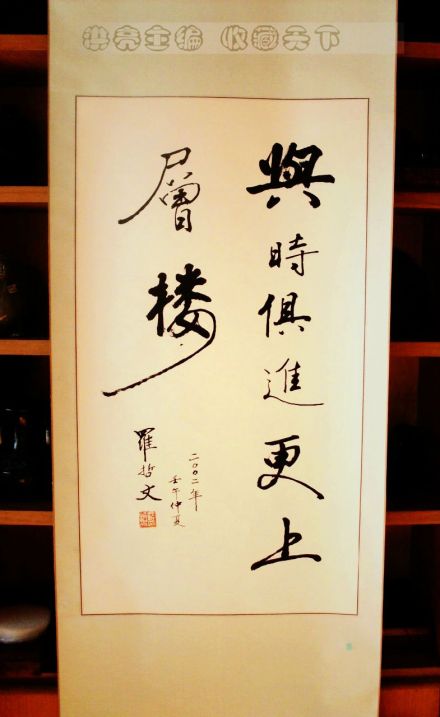 洪亮主编 收藏天下
與時俱進更上
層楼
二〇〇二年
壬午仲夏
羅哲文